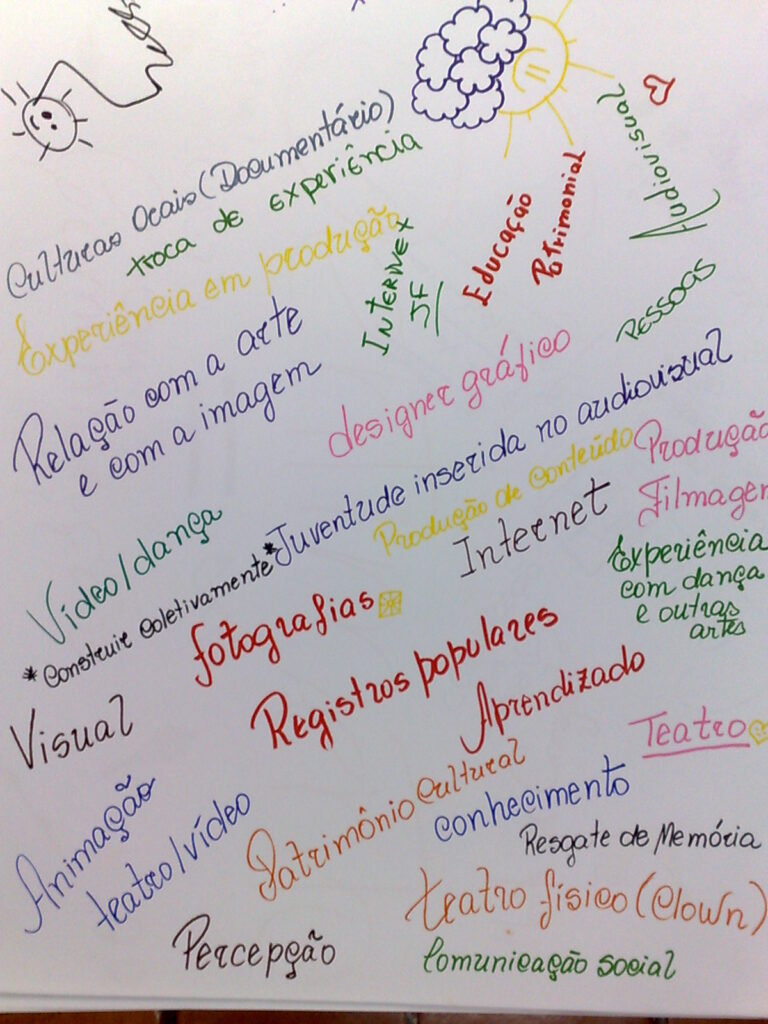 Culturas Ocais (Documentário)
troca de experiência
Experiência em produção
Audiovisual
Educação
Patrimonial
INTERIVEX
JF
PESSOAS
Relação com a arte
e com a imagem
designer gráfico
Juventude inserida no audiovisual
Produção
Filmagem
Produção de Conteúdo
Internet
Vídeo/dança
*Construir coletivamente*
Experiência
com dança
e outras
artes
fotografias
Registros populares
Aprendizado
Visual
Teatro
Patrimônio Cultural
conhecimento
Animação
teatro/vídeo
Resgate de Memória
teatro físico (Clown)
Percepção
Comunicação social